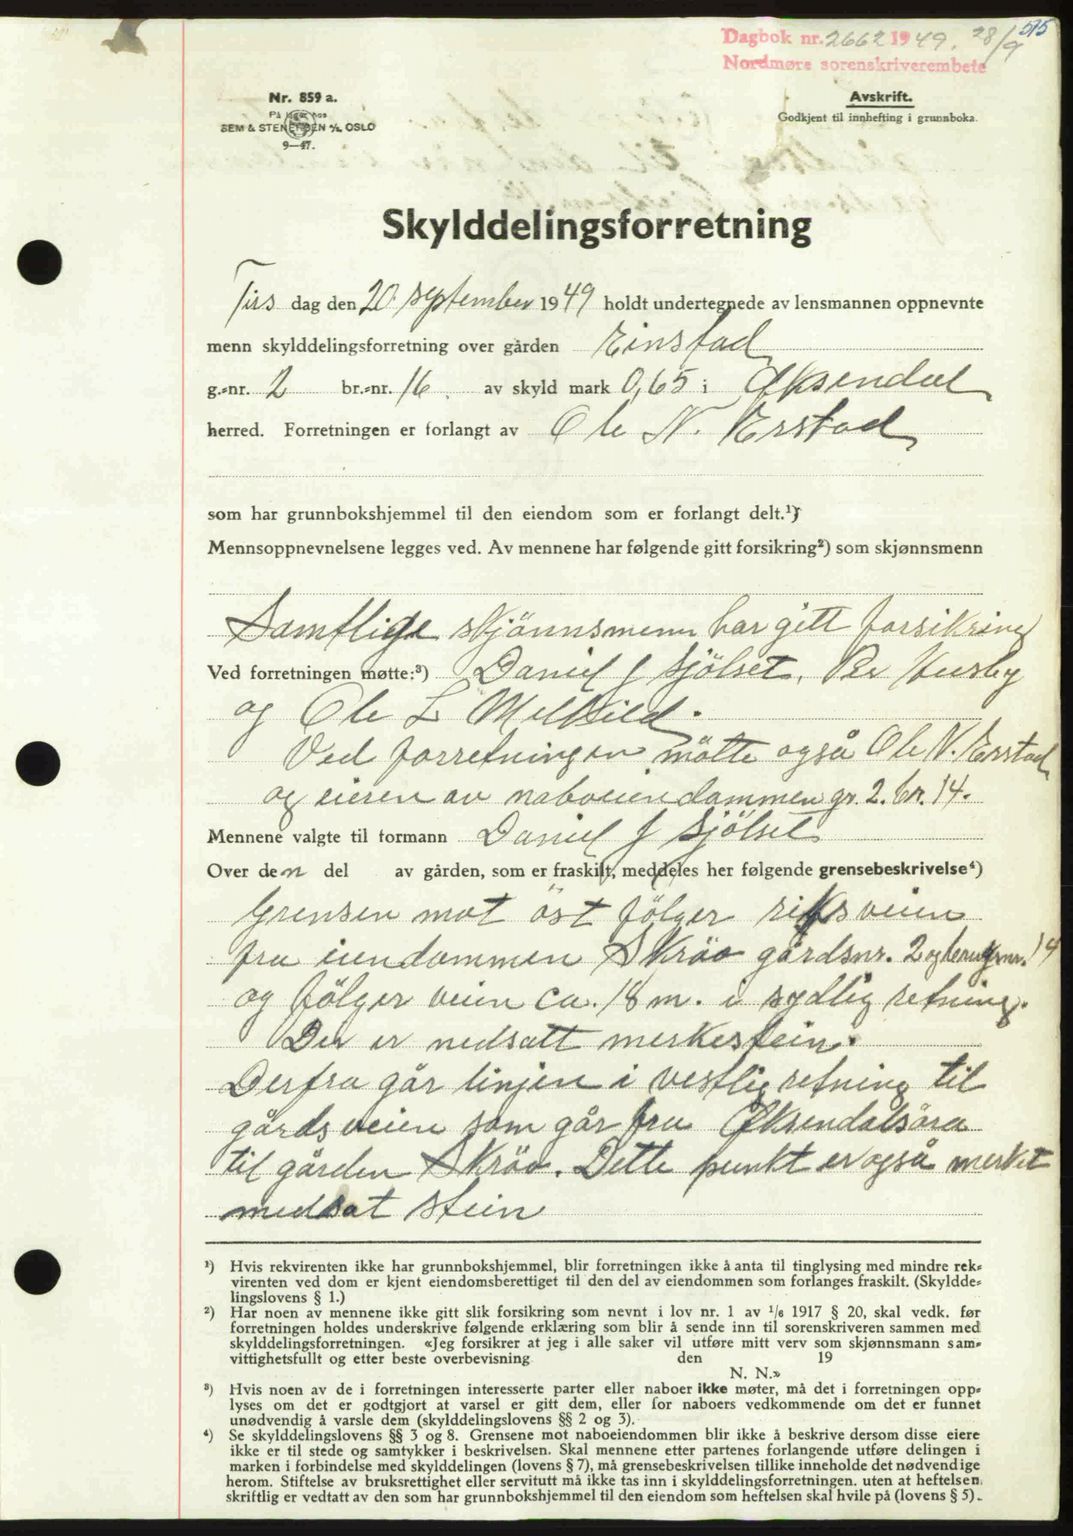 515
Dagbok nr. 2662 1949. 28/9
Nordmøre sorenskriverembete
Nr. 859 a.
På lager hos
SEM & STENERSEN A/S, OSLO
9—47.
Avskrift.
Godkjent til innhefting i grunnboka.
Skylddelingsforretning
Tirs dag den 20 september 1949 holdt undertegnede av lensmannen oppnevnte
menn skylddelingsforretning over gården Einstad
g.-nr. 2 br.-nr. 16, av skyld mark 0,65 i Øksendal
herred. Forretningen er forlangt av Ole N. Erstad
som har grunnbokshjemmel til den eiendom som er forlangt delt.¹)
Mennsoppnevnelsene legges ved. Av mennene har følgende gitt forsikring²) som skjønnsmenn
Samtlige skjönnsmenn har gitt forsikring
Ved forretningen møtte:³) Daniel J Sjölset, Per Husby
og Ole L Melkild.
Ved forretningen mötte også Ole N. Erstad
og eieren av naboeiendommen gr. 2. br. 14.
Mennene valgte til formann Daniel J Sjölset
Over den del av gården, som er fraskilt, meddeles her følgende grensebeskrivelse⁴)
Grensen mot öst fölger riksveien
fra eiendommen Skröo gårdsnr. 2 og bruksnr. 14
og fölger veien ca. 18 m. i sydlig retning.
Der er nedsatt merkestein.
Derfra går linjen i vestlig retning til
gårdsveien som går fra Øksendalsöra
til gården Skröo. Dette punkt er også merket
med sat stein
¹) Hvis rekvirenten ikke har grunnbokshjemmel, blir forretningen ikke å anta til tinglysing med mindre rek-
virenten ved dom er kjent eiendomsberettiget til den del av eiendommen som forlanges fraskilt. (Skyldde-
lingslovens § 1.)
²) Har noen av mennene ikke gitt slik forsikring som nevnt i lov nr. 1 av 1/6 1917 § 20, skal vedk. før
forretningen holdes underskrive følgende erklæring som blir å sende inn til sorenskriveren sammen med
skylddelingsforretningen. «Jeg forsikrer at jeg i alle saker vil utføre mitt verv som skjønnsmann sam-
vittighetsfullt og etter beste overbevisning den 19
N. N.»
³) Hvis noen av de i forretningen interesserte parter eller naboer ikke møter, må det i forretningen opp-
lyses om det er godtgjort at varsel er gitt dem, eller for naboers vedkommende om det er funnet
unødvendig å varsle dem (skylddelingslovens §§ 2 og 3).
⁴) Se skylddelingslovens §§ 3 og 8. Grensene mot naboeiendommen blir ikke å beskrive dersom disse eiere
ikke er til stede og samtykker i beskrivelsen. Skal mennene etter partenes forlangende utføre delingen i
marken i forbindelse med skylddelingen (lovens § 7), må grensebeskrivelsen tillike inneholde det nødvendige
herom. Stiftelse av bruksrettighet eller servitutt må ikke tas inn i skylddelingsforretningen, uten at heftelsen
skriftlig er vedtatt av den som har grunnbokshjemmel til den eiendom som heftelsen skal hvile på (lovens § 5).